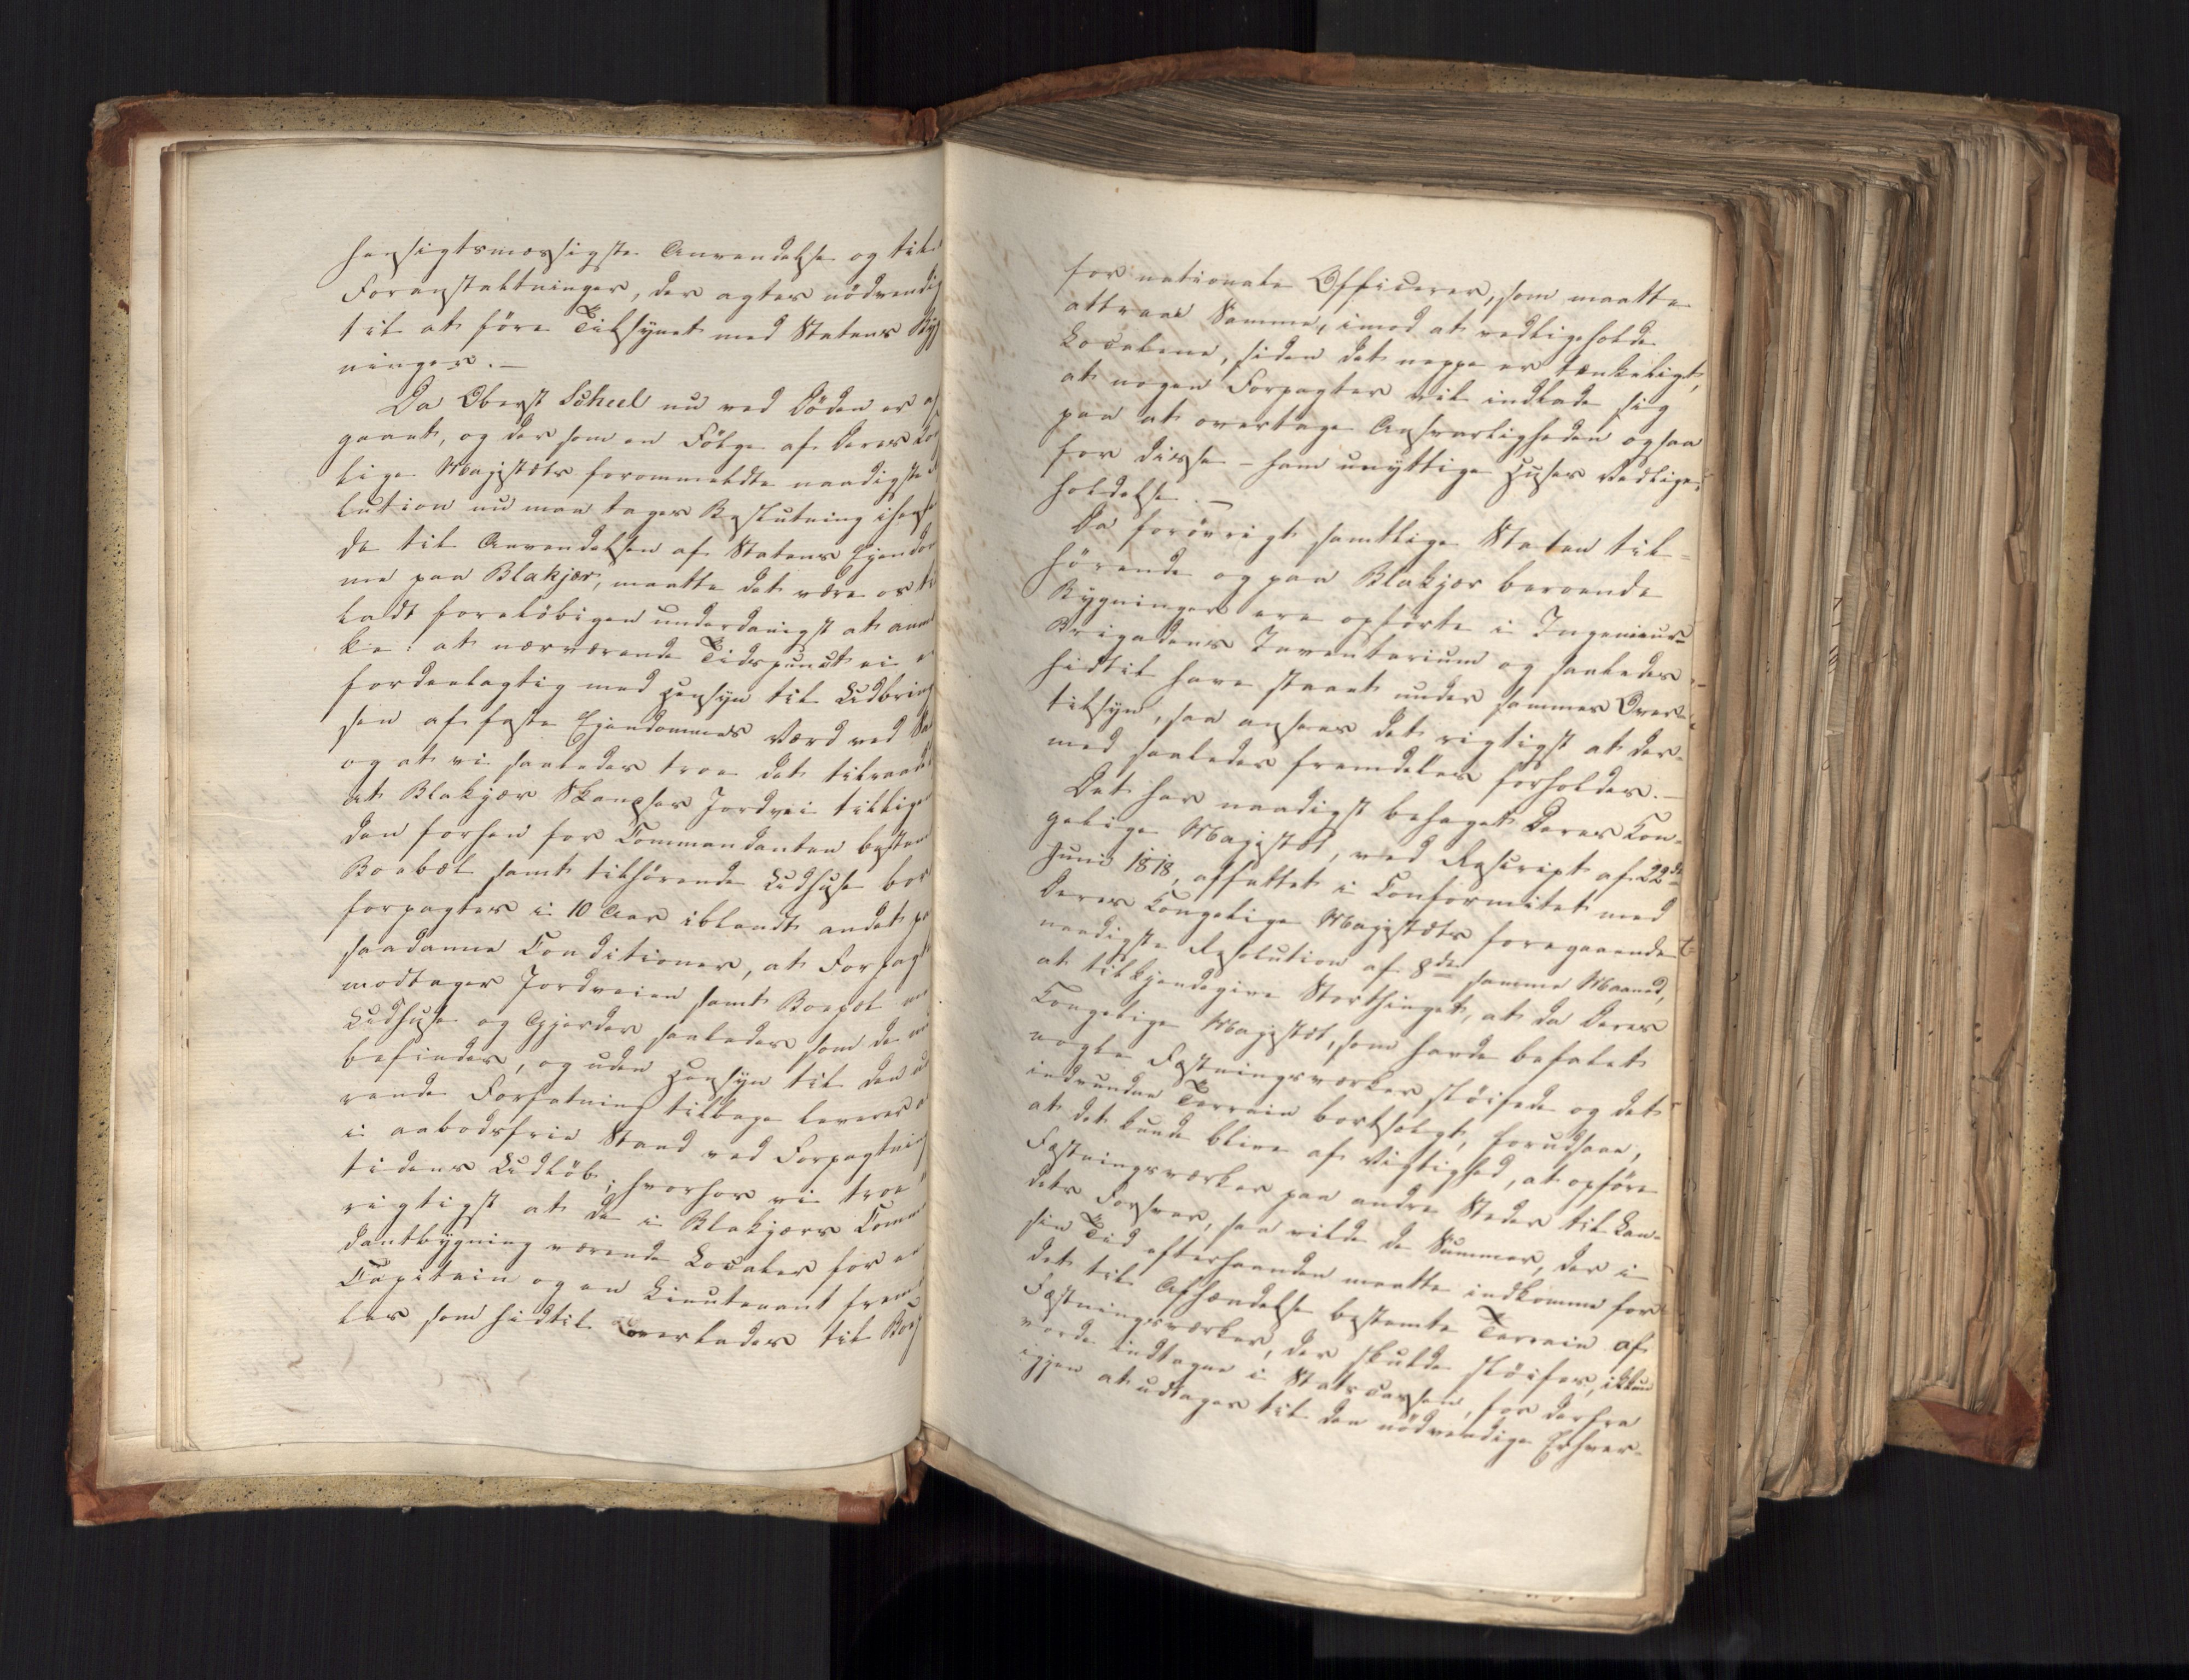 hensigtsmæssigste Anvendelse og til
Foranstaltninger, der agtes nödvendig
til at före Tilsynet med Statens Byg
ninger. —
Da Oberst Scheel nu ved Döden er af
gaaet, og der som en Fölge af Deres Kon
lige Majestæts forommeldte naadigste
lution nu maa tages Beslutning i hense
de til Anvendelsen af Statens Eiendom
me paa Blakjær, maatte det være os til
ladt foreløbigen underdanigst at anmær
ke: at nærværende Tidspunct ei er
fordeelagtig med Hensyn til Udbring
sen af faste Ejendommes Værd ved Sa
og at vi saaledes troe det tilraade
at Blakjær Skandses Jordvei tilligem
den forhen for Commandanten bestem
Boebæl samt tilhørende Udhuse bor
forpagtes i 10 Aar iblandt andet paa
saadanne Conditioner, at Forpagt
modtager Jordveien samt Boepæl me
Udhuse og Gjerder saaledes som de nu
befindes, og uden Hensyn til den væ
rende Forfatning tilbage leverer
i aabodsfrie Stand ved Forpagtning
tidens Udløb; hvorhos vi troe
rigtigst at de i Blakjærs Comm
dantbygning værende Localer for en
Capitain og en Lieutenant frem
les som hidtil overlades til Boe
for nationale Officerer, som maatte
attraae Samme, imod at vedligeholde
Localerne, siden det neppe er tænkeligt,
at nogen Forpagter vil indlade sig
paa at overtage Ansvarligheden ogsaa
for disse – ham unyttige Huses Vedlige-
holdelse. —
Da forövrigt samtlige Staten til-
hörende og paa Blakjær beroende
Bygninger ere opförte i Ingenieur-
Brigadens Inventarium og saaledes
hidtil have staaet under sammes Over-
tilsyn, saa ansees det rigtigst at der-
med saaledes fremdeles forholdes. —
Det har naadigst behaget Deres Kon-
gelige Majestæt, ved Rescript af 22de
Juni 1818, affattet i Conformitet med
Deres Kongelige Majestæts foregaaende
naadigste Resolution af 8de samme Maaned,
at tilkjendegive Storthinget, at da Deres
Kongelige Majestæt, som havde befalet
nogle Fæstningsværker slöifede og det
indvundne Terrain bortsolgt, forudsaae,
at det kunde blive af Vigtighed, at opföre
Fæstningsværker paa andre Steder til Lan-
dets Forsvar, saa vilde de Summer, der i
sin Tid efterhaanden maatte indkomme for
det til Afhændelse bestemte Terrain af
Fæstningsværker, der skulde slöifes, ikkun
vorde indtagne i Statscassen, for derfra
igjen at udtages til den nödvendige Erhver-